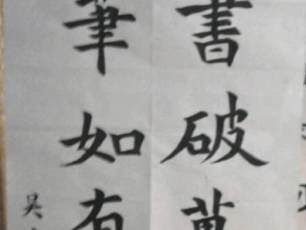 書破萬
筆如有
吳